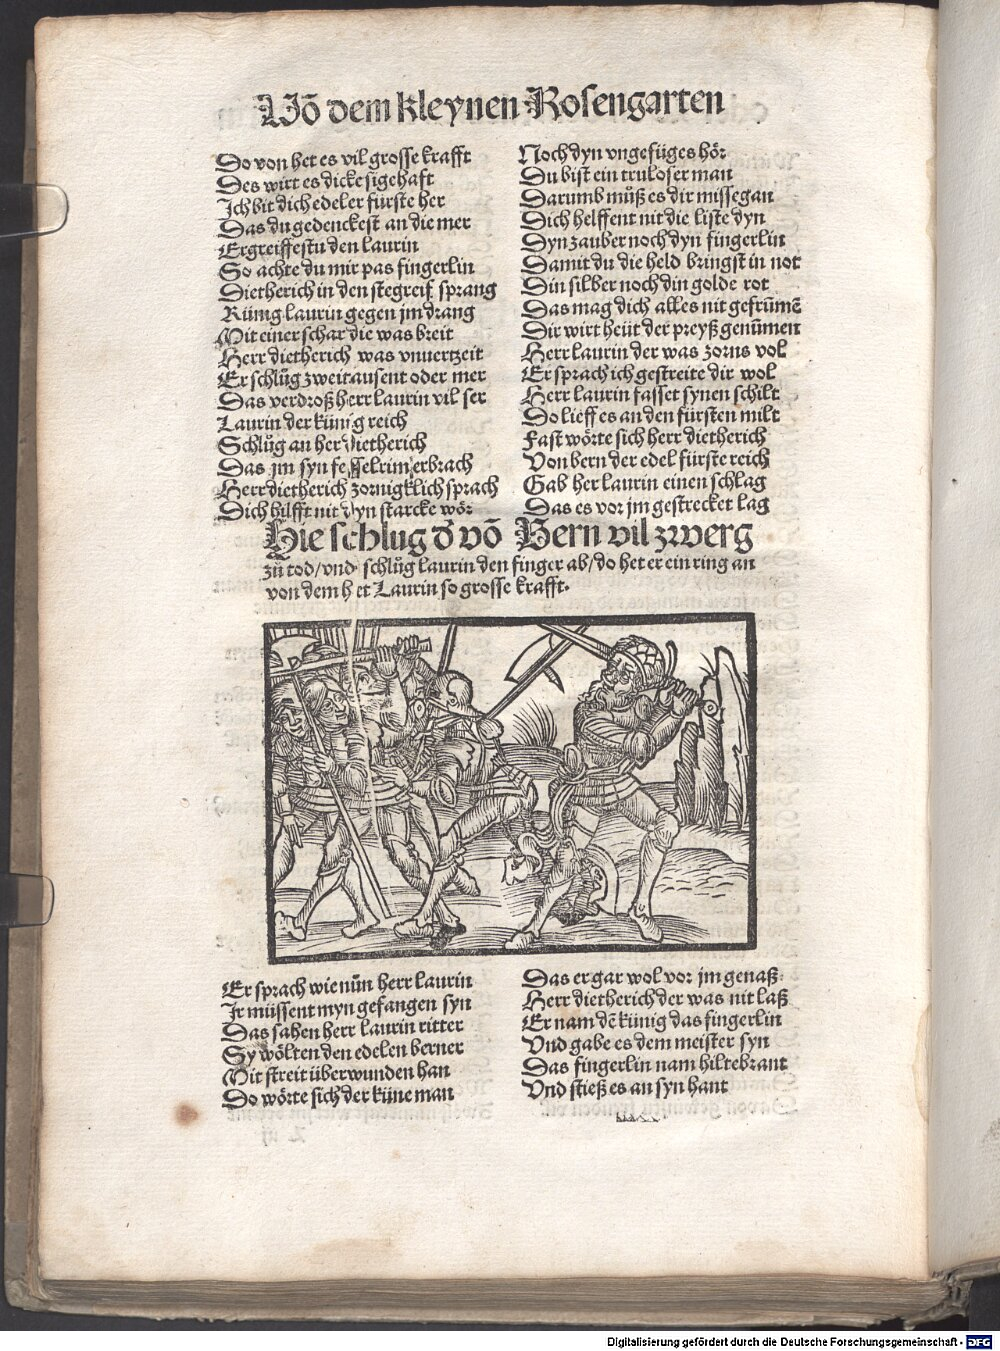 Võ dem kleynen Rosengarten
Do von het es vil grosse krafft
Des wirt es dicke sigehaft
Ich bit dich edeler fürste her
Das du gedenckest an die mer
Ergreiffestu den laurin
So achte du mir pas fingerlin
Dietherich in den stegreif sprang
Künig laurin gegen jm drang
Mit einer schar die was breit
Herr dietherich was vnuertzeit
Er schlůg zweitausent oder mer
Das verdroß herr laurin vil ser
Laurin der künig reich
Schlůg an her dietherich
Das jm syn fesselrim erbrach
Herr dietherich zornigklich sprach
Dich hilfft nit dyn starcke wör
Noch dyn vngefüges hör
Du bist ein truloser man
Darumb můß es dir missegan
Dich helffent nit die liste dyn
Dyn zauber noch dyn fingerlin
Damit du die held bringst in not
Din silber noch din golde rot
Das mag dich alles nit gefrümē
Dir wirt heüt der preyß genūmen
Herr laurin der was zorns vol
Er sprach ich gestreite dir wol
Herr laurin fasset synen schilt
Do lieff es an den fürsten milt
Fast wörte sich herr dietherich
Von bern der edel fürste reich
Gab her laurin einen schlag
Das es vor jm gestrecket lag
Hie schlug d̄ vō Bern vil zwerg
zů tod/vnd schlůg laurin den finger ab/do het er ein ring an
von dem het Laurin so grosse krafft.
Er sprach wie nůn herr laurin
Ir müssent myn gefangen syn
Das sahen herr laurin ritter
Sy wölten den edelen berner
Mit streit überwunden han
Do wörte sich der küne man
Das er gar wol vor jm genaß
Herr dietherich der was nit laß
Er nam dē künig das fingerlin
Vnd gabe es dem meister syn
Das fingerlin nam hiltebrant
Vnd stieß es an syn hant
Digitalisierung gefördert durch die Deutsche Forschungsgemeinschaft - DFG